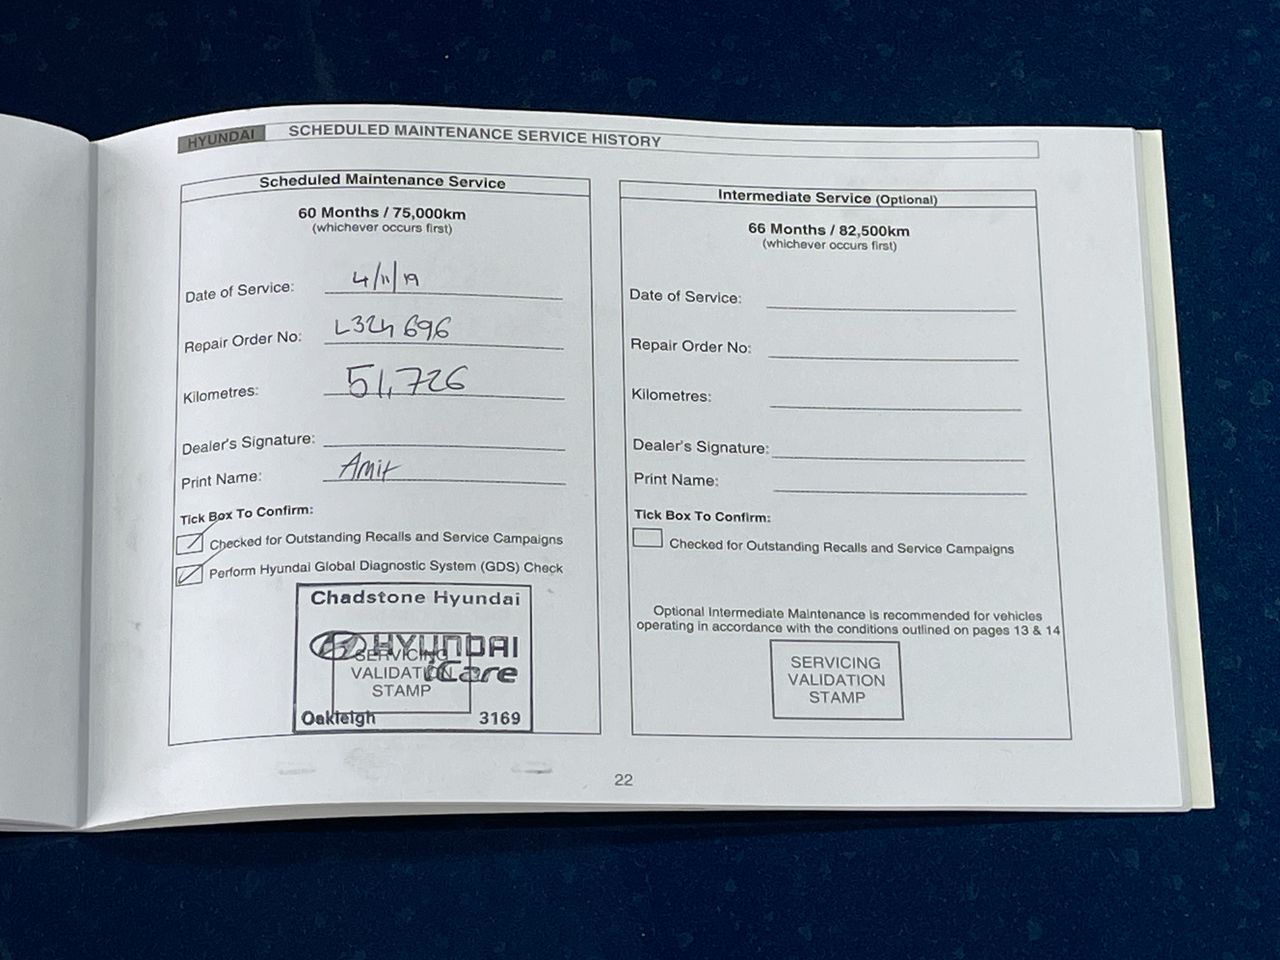 HYUNDAI SCHEDULED MAINTENANCE SERVICE HISTORY
Scheduled Maintenance Service
60 Months / 75,000km
(whichever occurs first)
Date of Service: 4/11/19
Repair Order No: L324696
Kilometres: 51,726
Dealer's Signature:
Print Name: Amit
Tick Box To Confirm:
Checked for Outstanding Recalls and Service Campaigns
Perform Hyundai Global Diagnostic System (GDS) Check
Chadstone Hyundai
HYUNDAI
iCare
SERVICING
VALIDATION
STAMP
Oakleigh 3169
Intermediate Service (Optional)
66 Months / 82,500km
(whichever occurs first)
Date of Service:
Repair Order No:
Kilometres:
Dealer's Signature:
Print Name:
Tick Box To Confirm:
Checked for Outstanding Recalls and Service Campaigns
Optional Intermediate Maintenance is recommended for vehicles
operating in accordance with the conditions outlined on pages 13 & 14
SERVICING
VALIDATION
STAMP
22